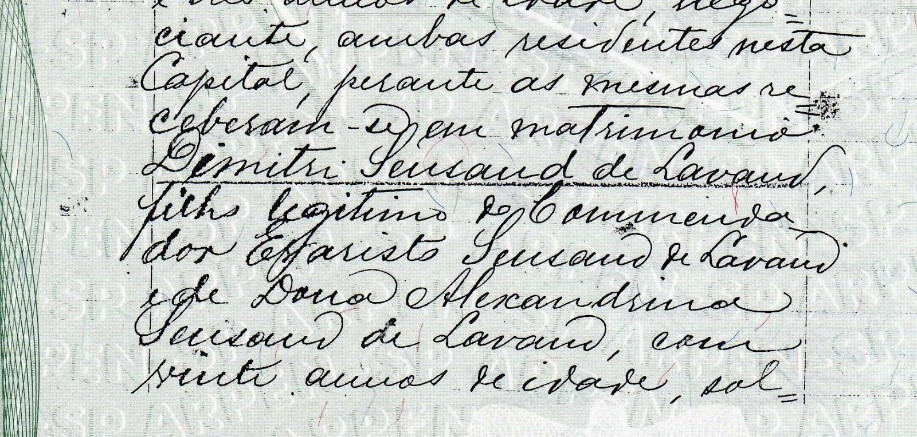 e annos de idade, nego=
ciante, ambas residentes nesta
Capital, perante as mesmas re=
ceberam-se em matrimonio
Dimitri Sensaud de Lavaud,
filho legitimo do Commenda-
dor Evaristo Sensaud de Lavaud
e de Dona Alexandrina
Sensaud de Lavaud, com
vinte annos de idade, sol=